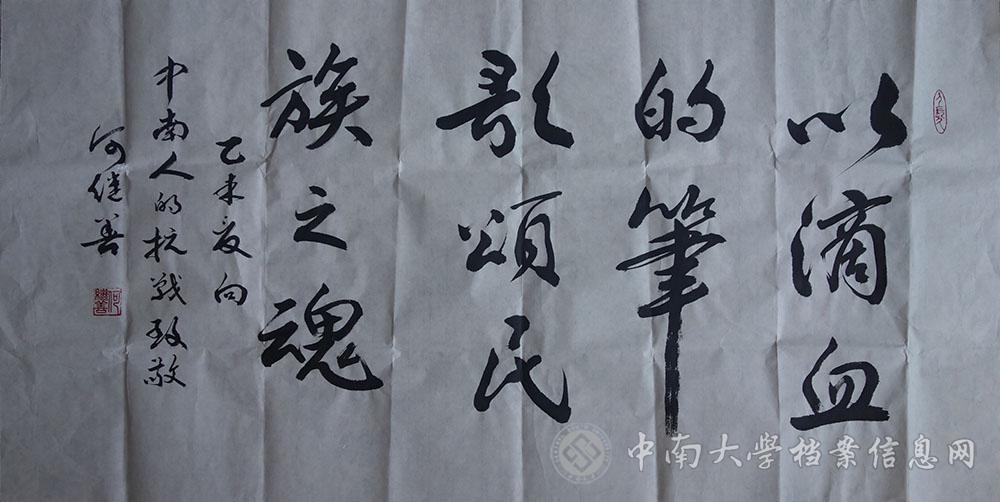 以滴血
的筆
歌頌民
族之魂
乙未夏向
中南人的抗战致敬
何继善
何継善
中南大學档案信息网